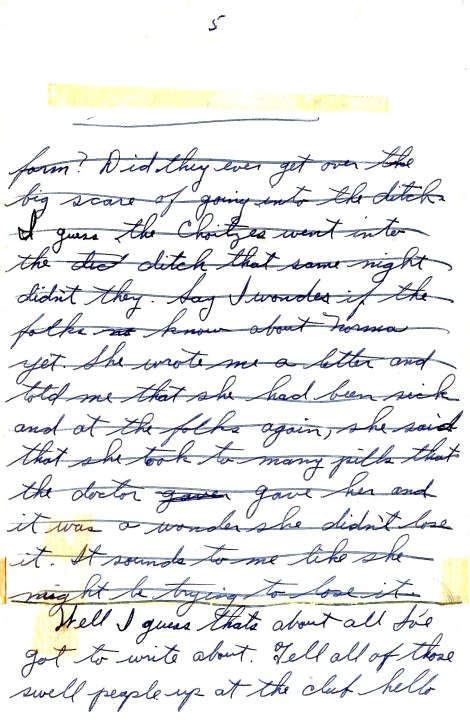 5
farm? Did they ever get over the
big scare of going into the ditch.
I guess the Choitzes went into
the dic ditch that same night
didn't they. Say I wonder if the
folks no know about Norma
yet. She wrote me a letter and
told me that she had been sick
and at the folks again, she said
that she took to many pills that
the doctor gaver gave her and
it was a wonder she didn't lose
it. It sounds to me like she
might be trying to lose it.
Well I guess thats about all I've
got to write about. Tell all of those
swell people up at the club hello